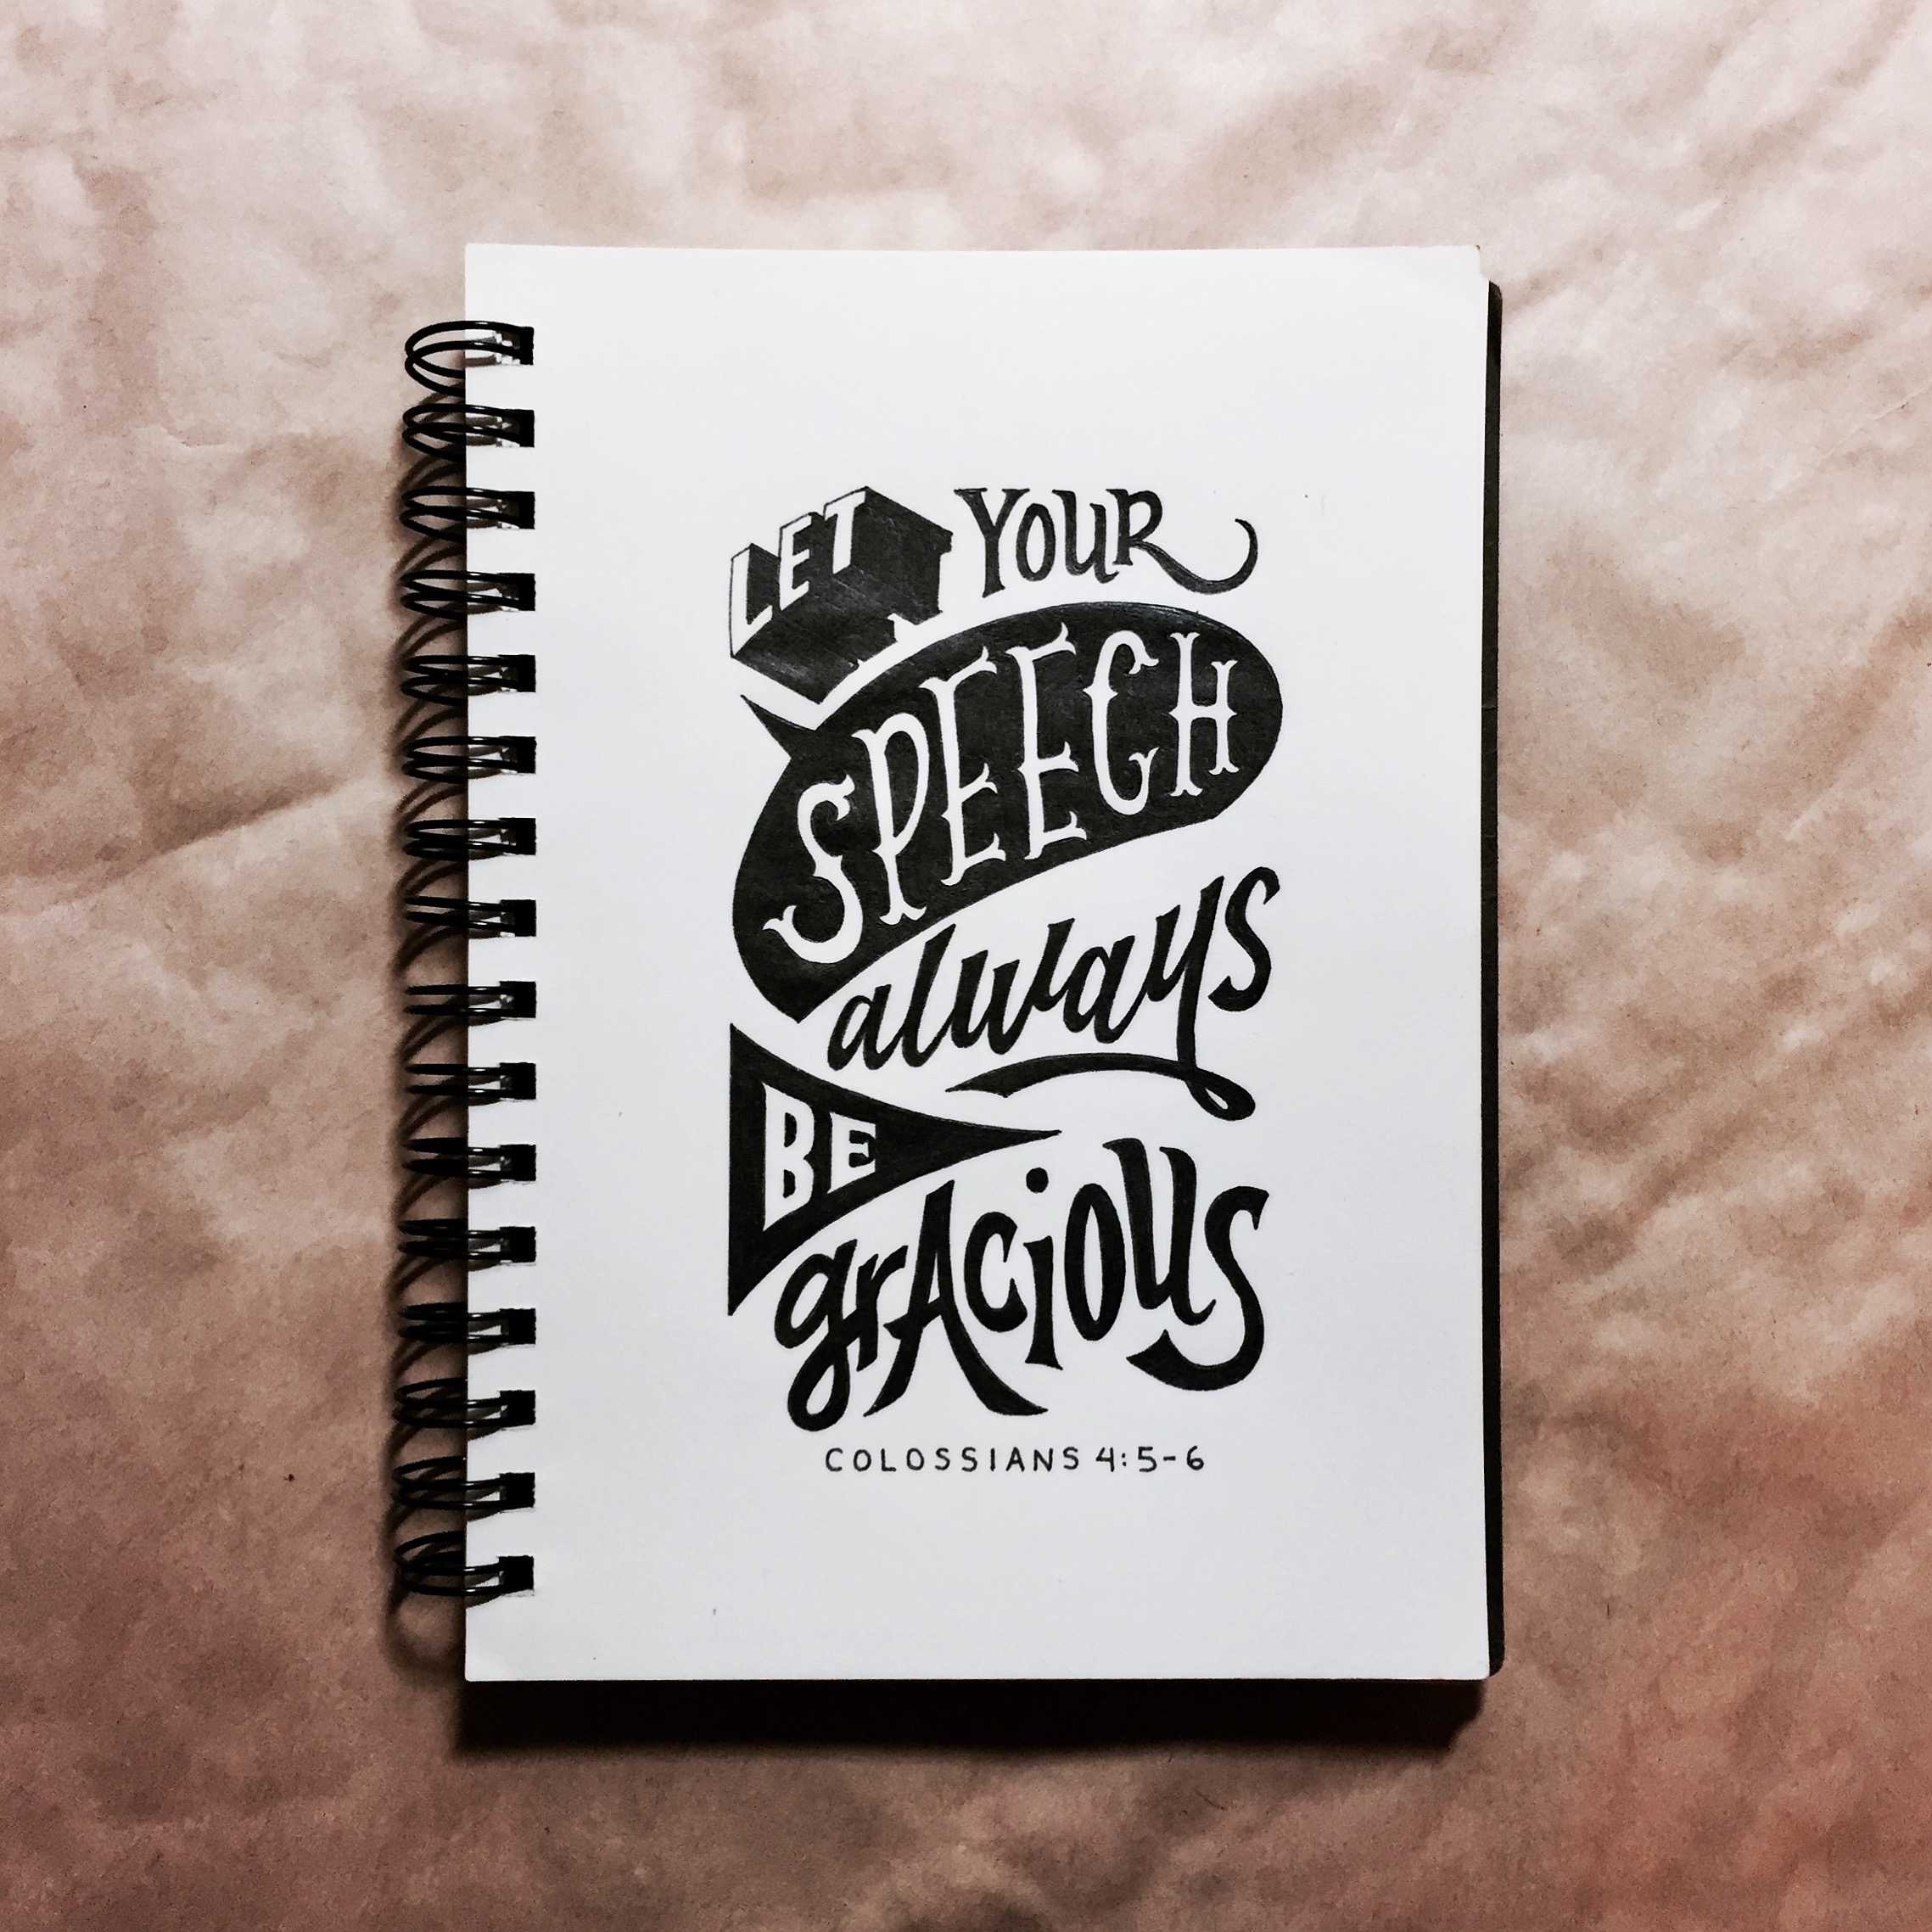 LET YOUR
SPEECH
always
BE
grAcioUs
COLOSSIANS 4:5-6